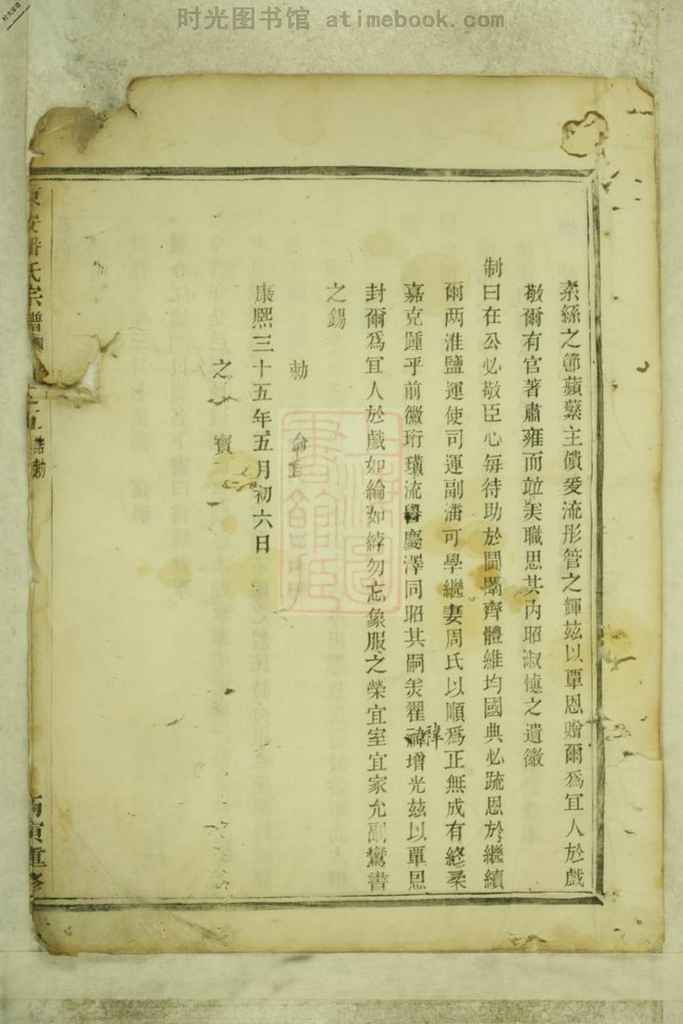 时光图书馆 atimebook.com
素絲之節蘋蘩主饋爰流彤管之輝茲以覃恩贈爾爲宜人於戲
敬爾有官著肅雍而竝美職思其內昭淑愼之遺徽
制曰在公必敬臣心每待助於閨閫齊體維均國典必疏恩於繼續
爾两淮鹽運使司運副潘可學繼妻周氏以順爲正無成有終柔
嘉克踵乎前徽珩璜流譽慶澤同昭其嗣美翟褘增光茲以覃恩
封爾爲宜人於戲如綸如綍勿忘象服之榮宜室宜家允副鸞書
之錫
勅命
康熙三十五年五月初六日
之寶
安潘氏宗譜
誥勅
丙寅重修